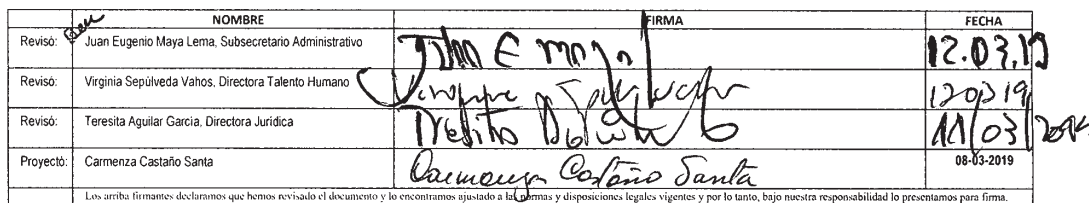 NOMBRE FIRMA FECHA
Revisó: Juan Eugenio Maya Lema, Subsecretario Administrativo Juan E Maya L 12.03.19
Revisó: Virginia Sepúlveda Vahos, Directora Talento Humano 120319
Revisó: Teresita Aguilar Garcia, Directora Jurídica Teresita Aguilar G 11/03/
Proyectó: Carmenza Castaño Santa Carmenza Castaño Santa 08-03-2019
Los arriba firmantes declaramos que hemos revisado el documento y lo encontramos ajustado a las normas y disposiciones legales vigentes y por lo tanto, bajo nuestra responsabilidad lo presentamos para firma.